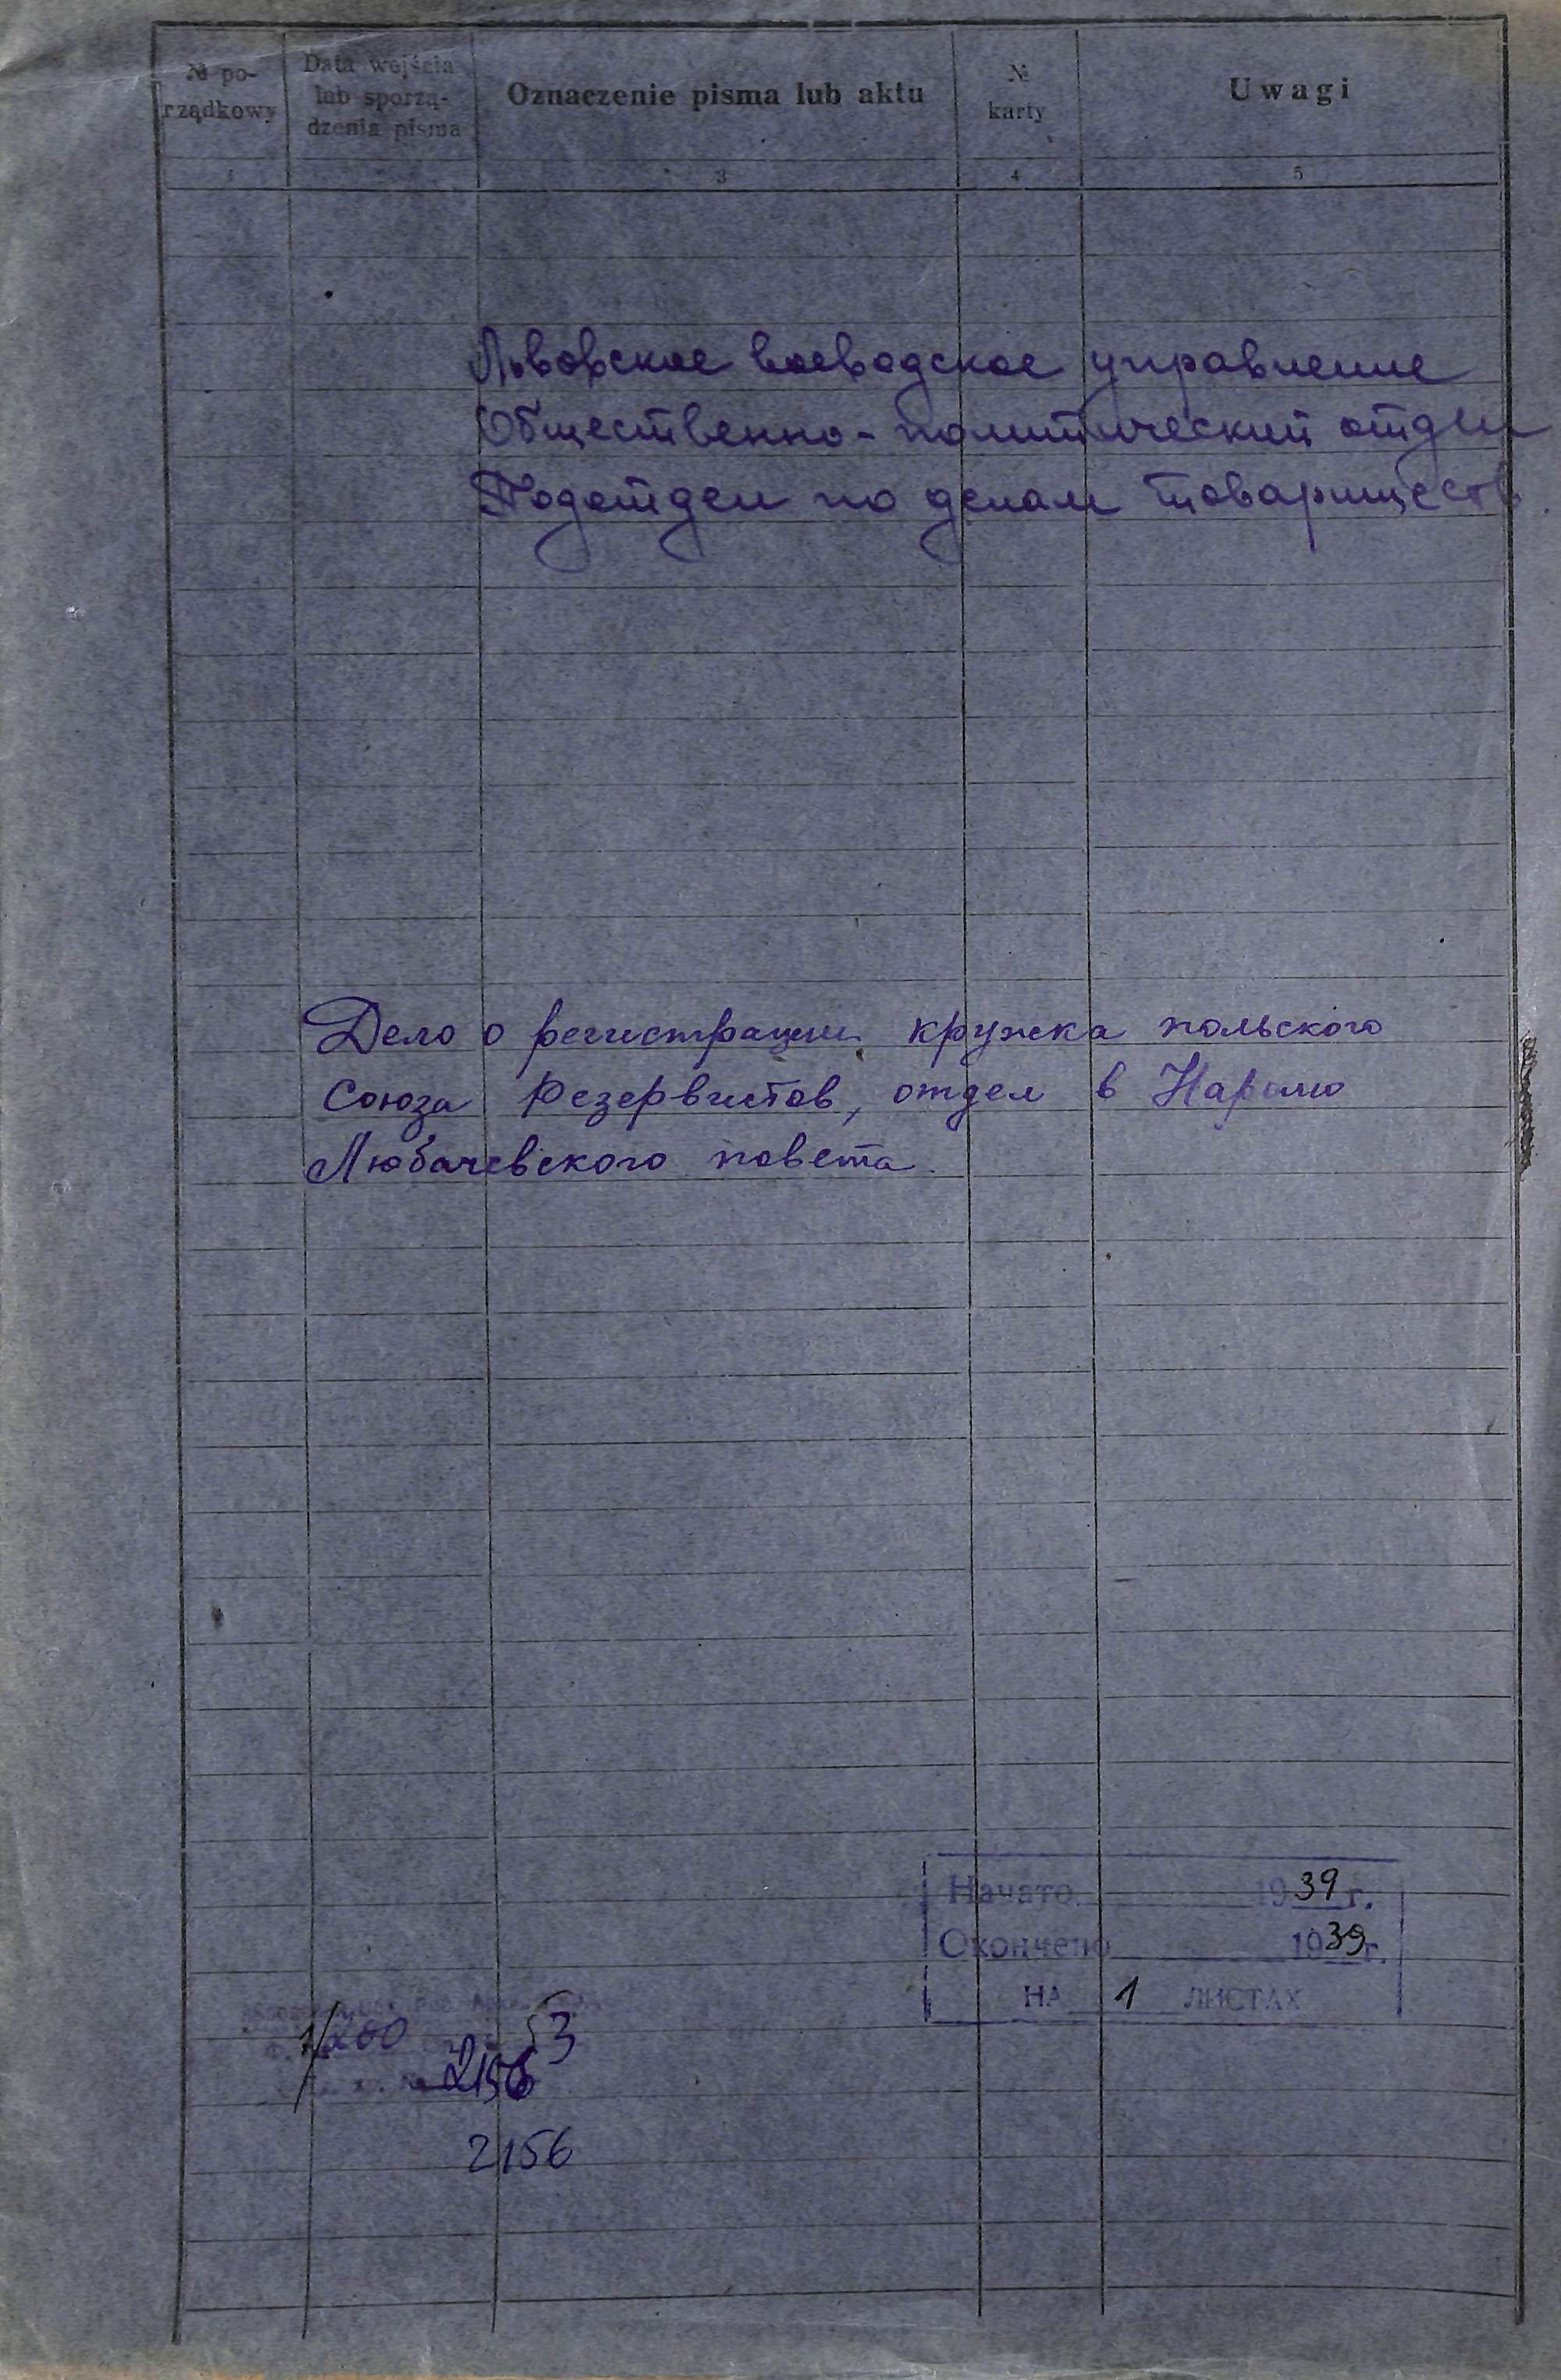 № po-
rządkowy
Data wejścia
lub sporzą-
dzenia pisma
Oznaczenie pisma lub aktu
№
karty
Uwagi
1
3
4
5
Львовское воеводское управление
Общественно-политический отдел
Подотдел по делам товариществ
Дело о регистрации кружка польского
союза резервистов, отдел в Нароль
Любачевского повета.
Начато 1939 г.
Окончено 1939 г.
НА 1 ЛИСТАХ
1/200 53
2156
2156